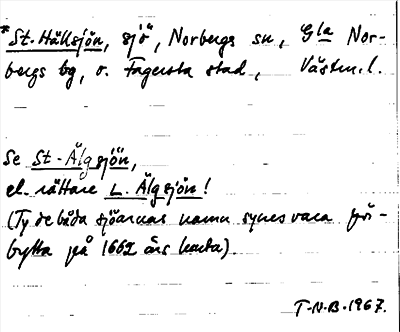 *St. Hällsjön, sjö, Norbergs sn, Gla Nor-
bergs bg, o. Fagersta stad, Västm. l.
Se St. Älgsjön,
el. rättare L. Älgsjön!
(Ty de båda sjöarnas namn synes vara för-
bytta på 1662 års karta).
T-N-B-1967.